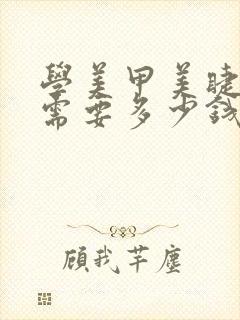 學美甲美睫
需要多少錢
顧我芊塵